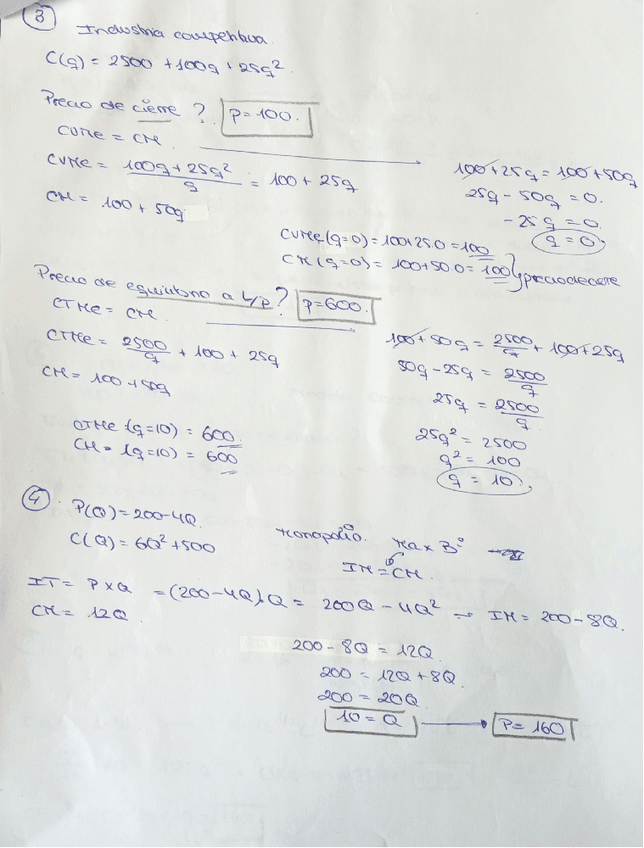 3
Industria competitiva.
C(q) = 2500 + 100q + 25q²
Precio de cierre ? P=100.
CVMe = CM.
CVMe = (100q + 25q²)/q = 100 + 25q
CM = 100 + 50q
100 + 25q = 100 + 50q
25q - 50q = 0.
- 25q = 0.
q = 0
CVMe (q=0) = 100+25.0 = 100
CM (q=0) = 100+50.0 = 100 } precio de cierre
Precio de equilibrio a L/p ? P=600.
CTMe = CM.
CTMe = 2500/q + 100 + 25q
CM = 100 + 50q
CTMe (q=10) = 600.
CM = (q=10) = 600
100 + 50q = 2500/q + 100 + 25q
50q - 25q = 2500/q
25q = 2500/q
25q² = 2500
q² = 100
q = 10.
4
P(Q) = 200 - 4Q.
C(Q) = 6Q² + 500
Monopolio. Max Bº
IM = CM.
IT = P x Q = (200 - 4Q).Q = 200Q - 4Q² → IM = 200 - 8Q.
CM = 12Q.
200 - 8Q = 12Q.
200 = 12Q + 8Q.
200 = 20Q.
10 = Q → P = 160